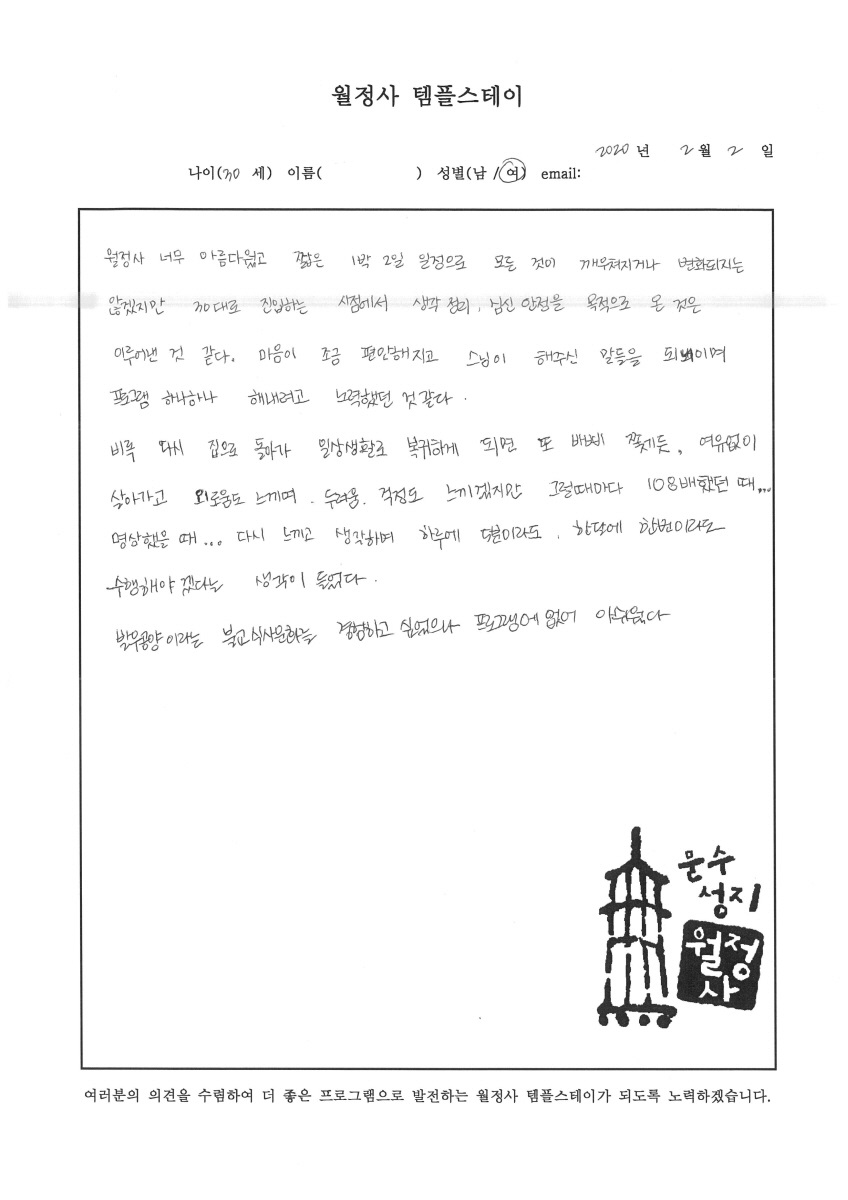 월정사 템플스테이
2020 년 2 월 2 일
나이(30 세) 이름( ) 성별(남 / 여) email:
월정사 너무 아름다웠고 짧은 1박 2일 일정으로 모든 것이 깨우쳐지거나 변화되지는
않겠지만 30대로 진입하는 시점에서 생각 정리, 심신 안정을 목적으로 온 것은
이루어낸 것 같다. 마음이 조금 편안해지고 스님이 해주신 말들을 되뇌이며
프로그램 하나하나 해내려고 노력했던 것 같다.
비록 다시 집으로 돌아가 일상생활로 복귀하게 되면 또 바삐 쫓게듯, 여유없이
살아가고 외로움도 느끼며, 두려움, 걱정도 느끼겠지만 그럴때마다 108배했던 때...
명상했을 때... 다시 느끼고 생각하며 하루에 한번이라도, 한달에 한번이라도
수행해야 겠다는 생각이 들었다.
발우공양이라는 불교식사문화를 경험하고 싶었으나 프로그램에 없어 아쉬웠다
문수
성지
월정
사
여러분의 의견을 수렴하여 더 좋은 프로그램으로 발전하는 월정사 템플스테이가 되도록 노력하겠습니다.